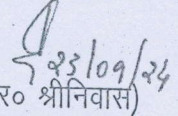 23/09/24
र० श्रीनिवास)